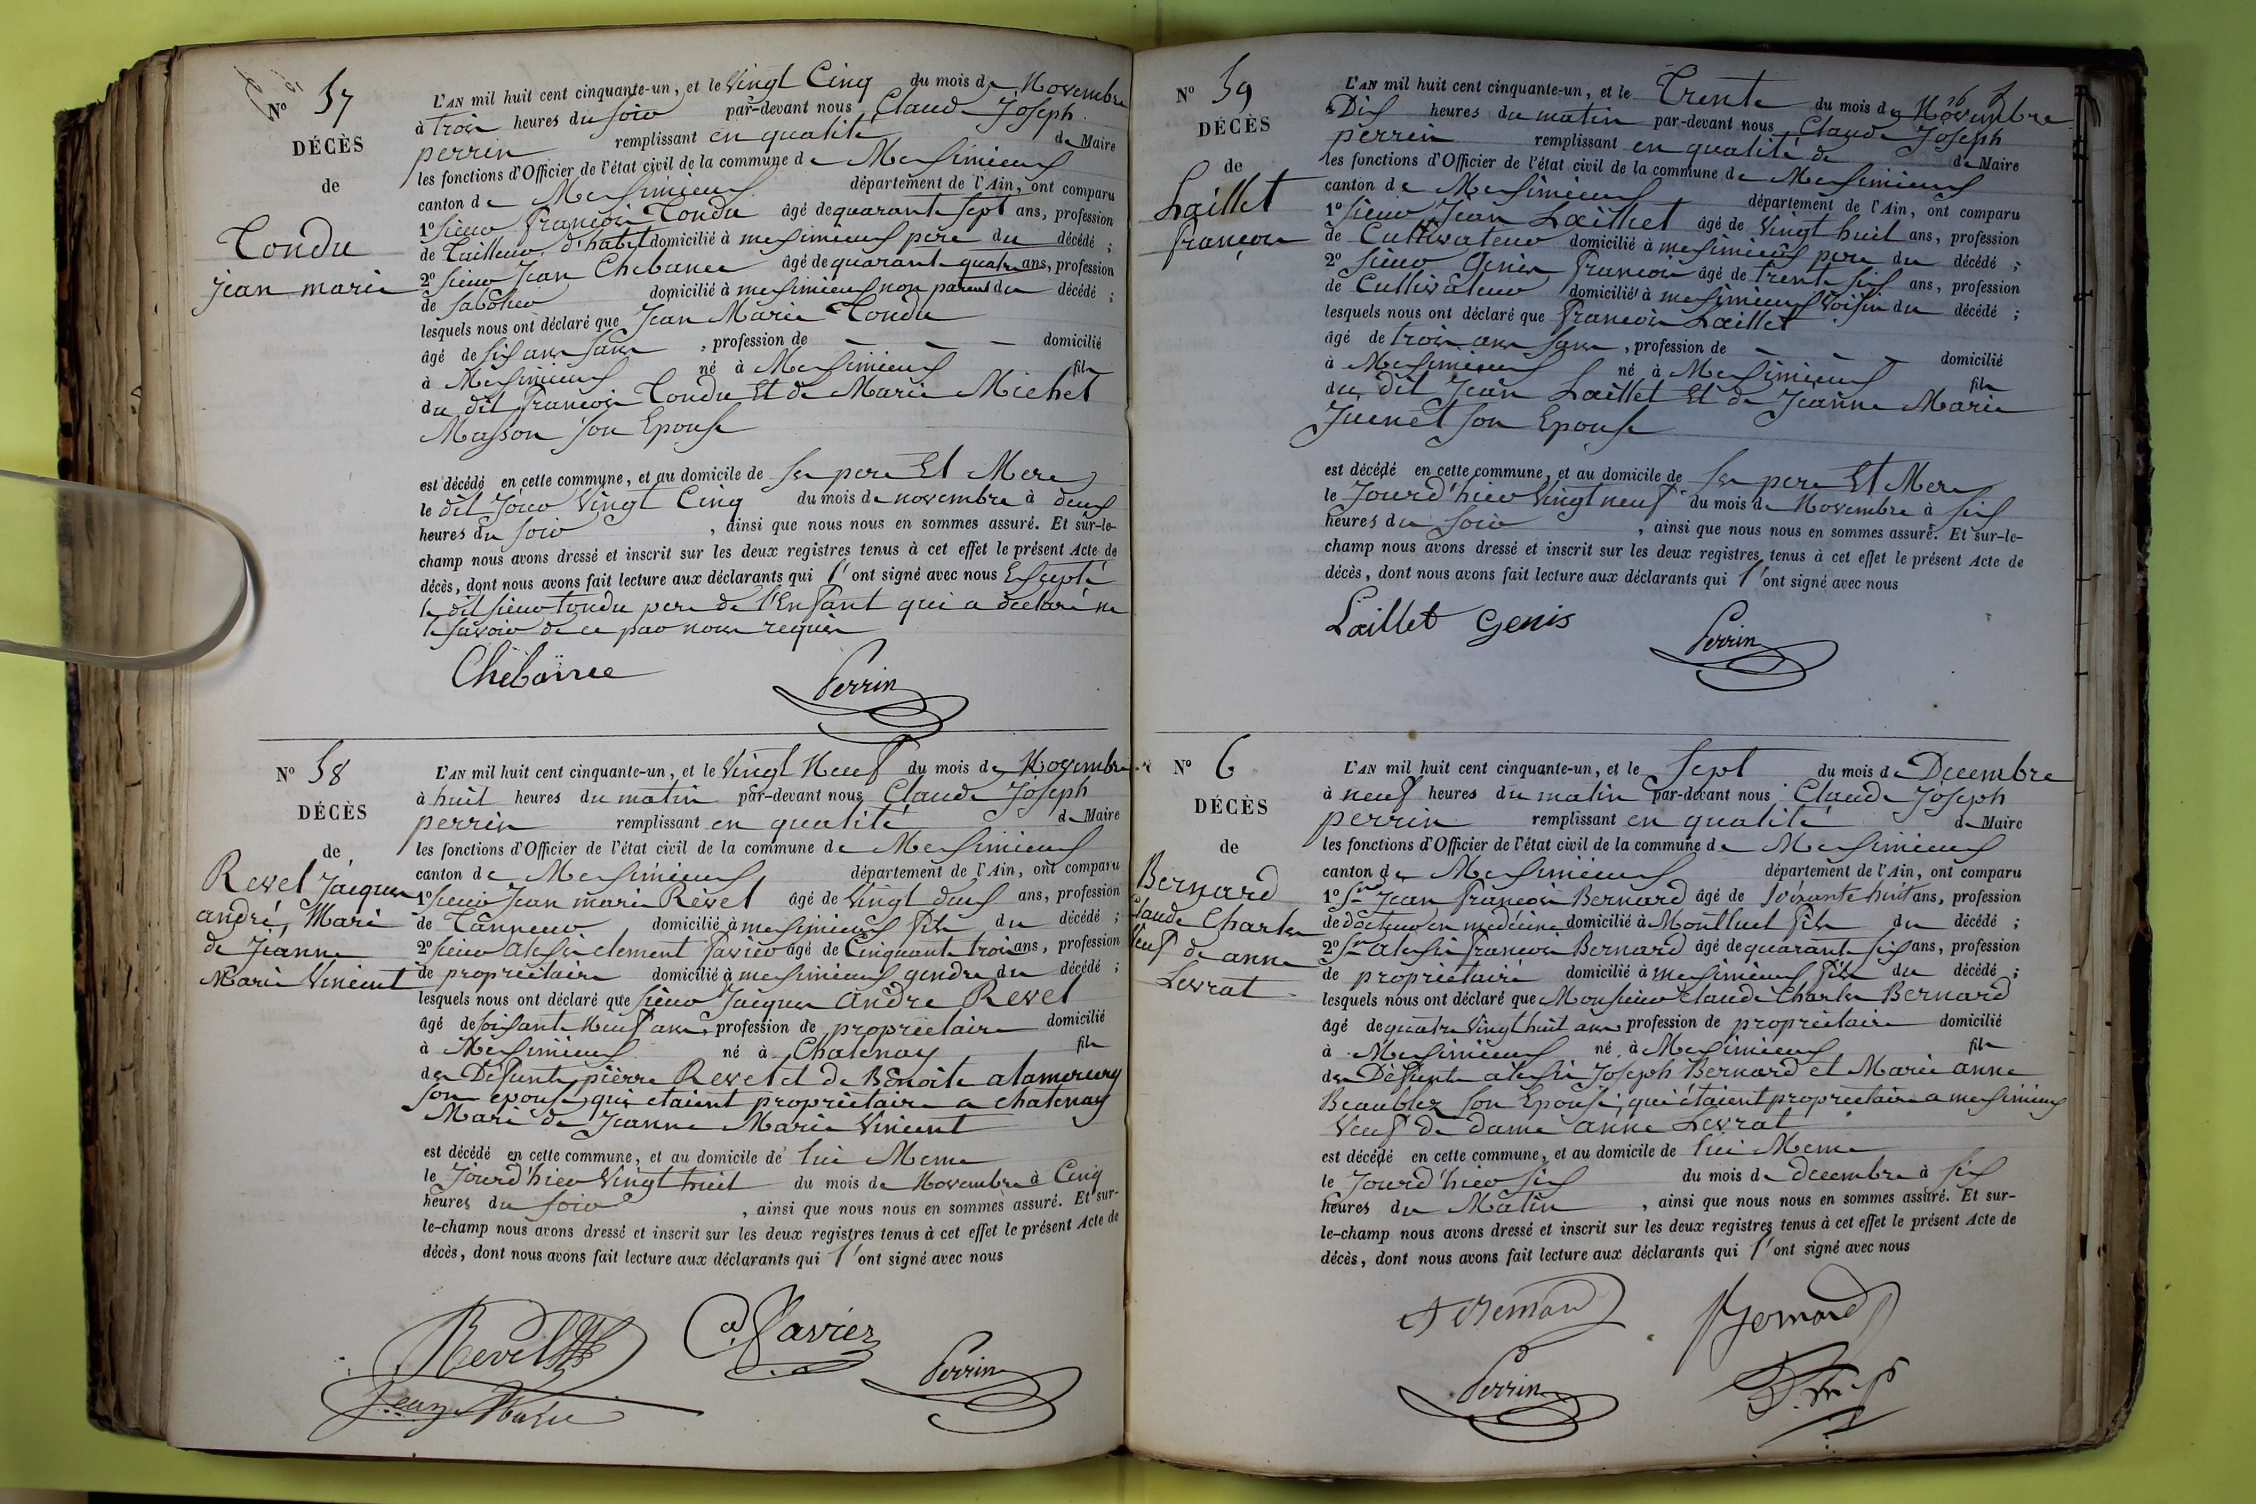 Nº 57
DÉCÈS
de
Tondu
jean marie
L'AN mil huit cent cinquante-un, et le Vingt Cinq du mois de Novembre
à trois heures du soir par-devant nous Claude Joseph
perrin remplissant en qualité de Maire
les fonctions d'Officier de l'état civil de la commune de Meximieux
canton de Meximieux département de l'Ain, ont comparu
1º sieur françois Tondu âgé de quarante sept ans, profession
de Tailleur d'habit domicilié à meximieux pere du décédé ;
2º sieur Jean Chebance âgé de quarante quatre ans, profession
de sabotier domicilié à meximieux non parent du décédé ;
lesquels nous ont déclaré que Jean Marie Tondu
âgé de six ans sans , profession de – – – domicilié
à Meximieux né à Meximieux fils
du dit françois Tondu Et de Marie Michel
Masson son Epouse
est décédé en cette commune, et au domicile de ses pere Et Mere
le dit Jour Vingt Cinq du mois de novembre à deux
heures du soir , ainsi que nous nous en sommes assuré. Et sur-le-
champ nous avons dressé et inscrit sur les deux registres tenus à cet effet le présent Acte de
décès, dont nous avons fait lecture aux déclarants qui l'ont signé avec nous Excepté
le dit sieur tondu pere de l'Enfant qui a declaré ne
le savoir de ce par nous requis
Perrin
Nº 58
DÉCÈS
de
Revel Jacques
andré, Mari
de Jeanne
Marie Vincent
L'AN mil huit cent cinquante-un, et le Vingt Neuf du mois de Novembre
à huit heures du matin par-devant nous Claude Joseph
perrin remplissant en qualité de Maire
les fonctions d'Officier de l'état civil de la commune de Meximieux
canton de Meximieux département de l'Ain, ont comparu
1º sieur Jean marie Revel âgé de Vingt deux ans, profession
de Tanneur domicilié à meximieux fils du décédé ;
2º sieur alexis clement Favier âgé de Cinquante trois ans, profession
de proprietaire domicilié à meximieux gendre du décédé ;
lesquels nous ont déclaré que sieur Jacques andre Revel
âgé de soixante Neuf ans, profession de proprietaire domicilié
à Meximieux né à Chatenay fils
des Défunts pierre Revel et de Benoite alamercery
son epouse, qui etaient proprietaires a chatenay
Mari de Jeanne Marie Vincent
est décédé en cette commune, et au domicile de lui Meme
le Jourd'hier Vingt huit du mois de Novembre à Cinq
heures du soir , ainsi que nous nous en sommes assuré. Et sur-
le-champ nous avons dressé et inscrit sur les deux registres tenus à cet effet le présent Acte de
décès, dont nous avons fait lecture aux déclarants qui l'ont signé avec nous
Revel
Favier
Perrin
Jean Marie
Nº 59
DÉCÈS
de
Laillet
françois
L'AN mil huit cent cinquante-un, et le Trente du mois de Novembre
à Dix heures du matin par-devant nous Claude Joseph
perrin remplissant en qualité de de Maire
les fonctions d'Officier de l'état civil de la commune de Meximieux
canton de Meximieux département de l'Ain, ont comparu
1º sieur Jean Laillet âgé de Vingt huit ans, profession
de Cultivateur domicilié à meximieux pere du décédé ;
2º sieur Genis francois âgé de trente six ans, profession
de Cultivateur domicilié à meximieux Voisin du décédé ;
lesquels nous ont déclaré que francois Laillet
âgé de trois ans sans , profession de – – – domicilié
à Meximieux né à Meximieux fils
du dit Jean Laillet Et de Jeanne Marie
Juenet son Epouse
est décédé en cette commune, et au domicile de ses pere Et Mere
le Jourd'hier Vingt neuf du mois de Novembre à six
heures du soir , ainsi que nous nous en sommes assuré. Et sur-le-
champ nous avons dressé et inscrit sur les deux registres tenus à cet effet le présent Acte de
décès, dont nous avons fait lecture aux déclarants qui l'ont signé avec nous
Laillet Genis
Perrin
Nº 6
DÉCÈS
de
Bernard
Claude Charles
Veuf de anne
Levrat
L'AN mil huit cent cinquante-un, et le Sept du mois de Decembre
à neuf heures du matin par-devant nous Claude Joseph
perrin remplissant en qualité de Maire
les fonctions d'Officier de l'état civil de la commune de Meximieux
canton de Meximieux département de l'Ain, ont comparu
1º Sr Jean francois Bernard âgé de soixante huit ans, profession
de docteur en medécine domicilié à Montluel fils du décédé ;
2º Sr alexis francois Bernard âgé de quarante six ans, profession
de proprietaire domicilié à meximieux fils du décédé ;
lesquels nous ont déclaré que Monsieur Claude Charles Bernard
âgé de quatre Vingt huit ans profession de proprietaire domicilié
à Meximieux né à Meximieux fils
des Défunts alexis Joseph Bernard et Marie anne
Beaublez son Epouse, qui étaient proprietaires a meximieux
Veuf de dame anne Levrat
est décédé en cette commune, et au domicile de lui Meme
le Jourd'hier six du mois de decembre à six
heures du Matin , ainsi que nous nous en sommes assuré. Et sur-
le-champ nous avons dressé et inscrit sur les deux registres tenus à cet effet le présent Acte de
décès, dont nous avons fait lecture aux déclarants qui l'ont signé avec nous
Bernard
Perrin